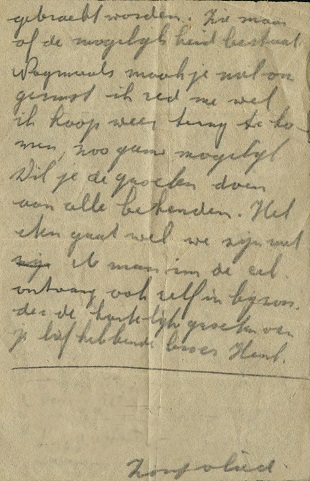 gebracht worden. Zie maar
of de mogelijk heid bestaat.
Nogmaals maak je niet on
gerust ik red me wel
ik hoop weer terug te ko-
men, zoo gauw mogelijk
Wil je de groeten doen
aan alle bekenden. Het
eten gaat wel we zijn met
man in de cel.
ontvang ook zelf in bijzon-
der de hartelijke groeten van
je liefhebbende broer Henk.